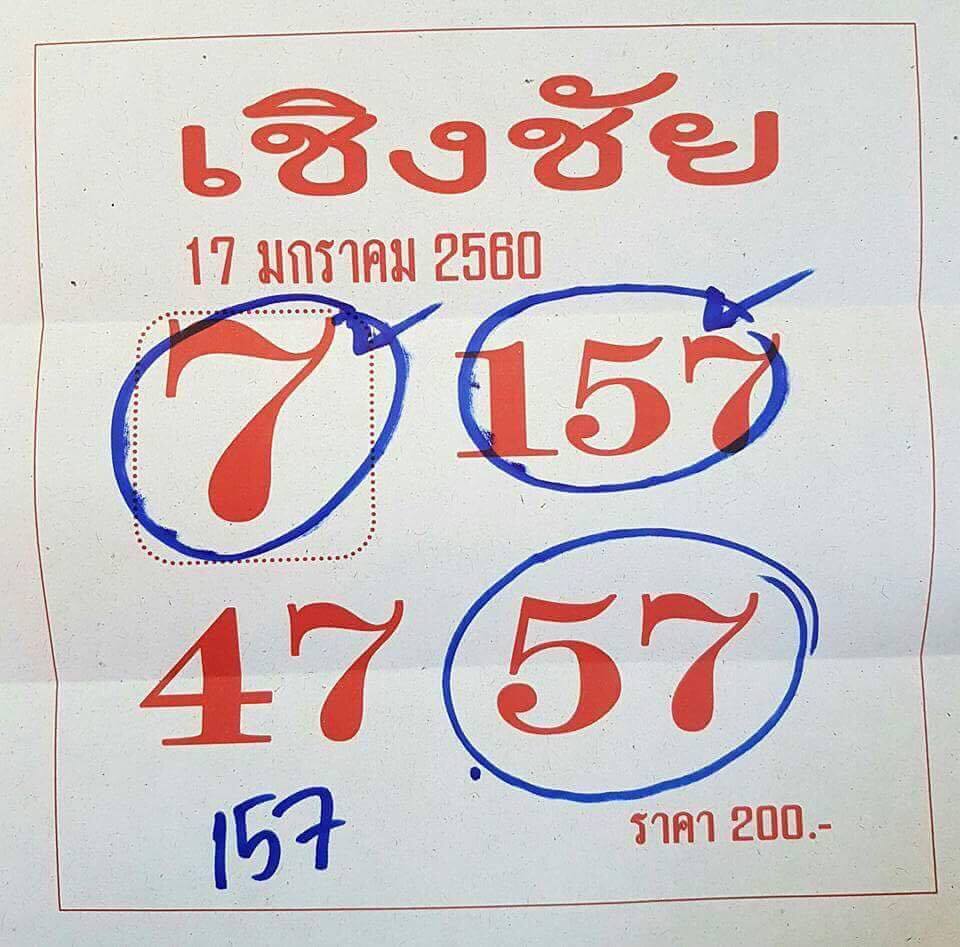 เชิงชัย
17 มกราคม 2560
7 157
47 57
157
ราคา 200.-